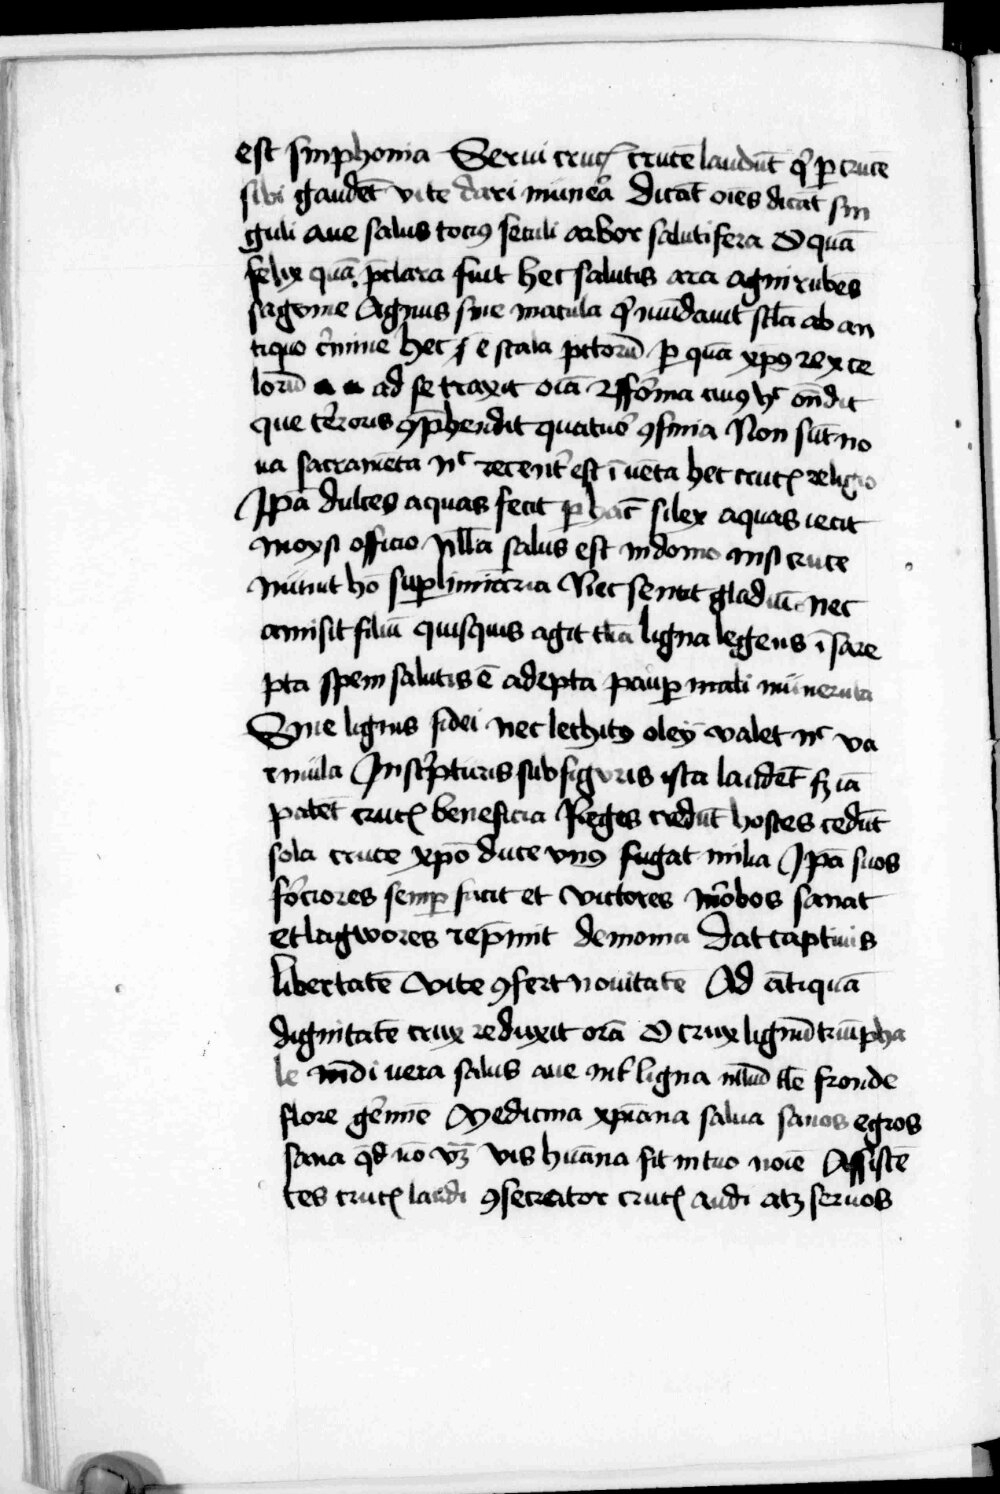 est simphonia Serui cruc͛ crucē laudūt q̇ ꝑ crucē
sibi gaudēt vite dari mūnera Dicāt oīes dicāt sin
guli aue salus tociꝰ seculi arbor salutifera O quā
felix quā p̄clara fuit hec salutis ara agni rubēs
sagwine Agnus sine macula q̇ mūdauit scl̄a ab an
tiquo c̍mine hec ē scala pctorū ꝑ quā xp̄ꝰ rex ce
lorū ad se traxit oīa fforma cuiꝰ hͨ on̄dit
que t̍roris ꝯp̄hendit quatuor ꝯfinia Non sūt no
ua sacramēta nͨ recent̍ est īuēta hec cruc͛ religio
Ip̄a dulces aquas fecit ꝑ hāc silex aquas iecit
moysi officio Nll̄a salus est in domo nisi cruce
mūniut hō suꝑliminaria Nec sentit gladiū nec
amisit filiū quisquis agit tl̄ia ligna legens ī sare
pta spem salutis ē adepta pauꝑ muli mūnerula
Sine lignis fidei nec lechitꝰ oley valet nͨ va
rinula In sc̍pturis sub figuris ista laudēt sꝫ iā
patēt cruc͛ beneficia Reges credūt hostes cedūt
sola cruce xp̄o duce vnꝰ fugat milia Ip̄a suos
forciores semꝑ facit et victores morbos sanat
et lagwores rep̄mit demonia Dat captiuis
libertatē vite ꝯfert nouitatē Ad ātiquā
dignitatē crux reduxit oīa O crux lignū triūpha
le mūdi vera salus aue int̍ ligna nullū tl̄e fronde
flore germīe Medicina xpīana salua sanos egros
sana qd̄ nō vꝫ vis hūana fit in tuo noīe Assistē
tes cruc͛ laudi ꝯsecrator cruc͛ audi atꝫ seruos